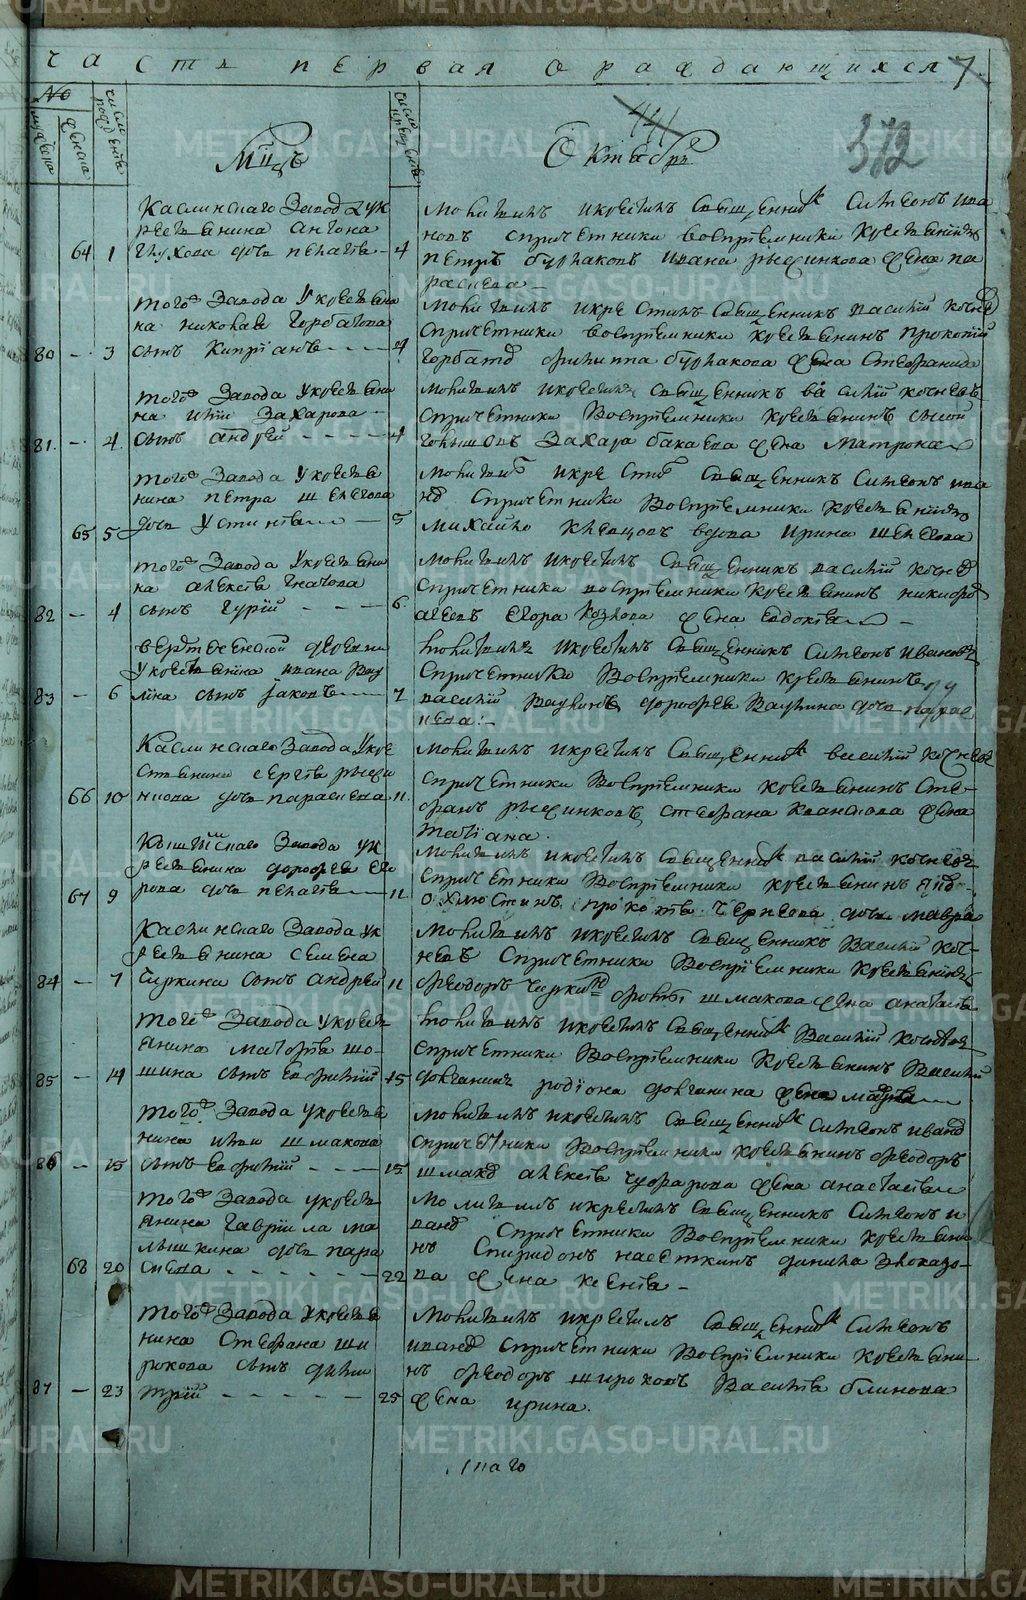 часть первая о раждающихся 7
№
мужеска
женска
числа рожденiя
мцъ
числа крещенiя
441
Октябрь
372
Каслинскаго Завода у кр
естьянина Антона
64 1 Глухова дочь Пелагея 4
молитвилъ и крестилъ священникъ Симеонъ Ива
новъ с причетники восприемники крестьянинъ
Петръ Булаковъ Ивана Рыжинкова жена Па
расковья
того Завода у крестьяни
на Николая Горбатова
80 – 3 сынъ Киприанъ 4
молитвилъ и крестилъ священникъ Василiй Кочнев
с причетники восприемники крестьянинъ Прокопiй
Горбатов Филиппа Булакова жена Стефанида
того Завода у крестьяни
на Илiи Захарова
81. – 4. сынъ Андрей 4
молитвилъ и крестилъ священникъ Василiй Кочневъ
с причетники восприемники крестьянинъ
Захара Бакаева жена Матрона
того Завода у крестья
нина Петра Шелегова
65 5 дочь Устинья 5
молитвил и крестил священникъ Симеонъ Ива
нов с причетники восприемники крестьянинъ
Михайло вдова Ирина Шелегова
того Завода у крестьяни
на Алексея Игначова
82 – 4 сынъ Гурiй 6.
молитвилъ и крестилъ священникъ Василiй Кочнев
с причетники восприемники крестьянинъ Никифор
Агеевъ Егора Козлова жена Евдокiя
деревни
у крестьянина Ивана Вау
83 – 6 лина сынъ Iаковъ 7
молитвилъ и крестилъ священникъ Симеонъ Ивановъ
с причетники восприемники крестьянинъ
Василiй Ваулинъ Дорофея Ваулина дочь Парас
кева
Каслинскаго Завода у кре
стьянина Сергея Рыжи
66 10 нкова дочь Параскева 11.
молитвилъ и крестилъ священник Василiй Кочнев
с причетники восприемники крестьянинъ Сте-
фанъ Рыжинковъ Стефана Квашнова жена
Татiана.
Кыштымскаго Завода у к
рестьянина Дорофея Его
67 9 рова дочь Пелагея 11
молитвилъ и крестилъ священник Василiй Кочнев
с причетники восприемники крестьянинъ Яков
Охлюстинъ Прокопья Чернова дочь Мавра
Каслинскаго Завода у к
рестьянина Семена
84 – 7 Чиркина сынъ Андрей 11
молитвилъ и крестилъ священникъ Василiй Коч-
невъ с причетники восприемники крестьянинъ
Феодоръ Чиркин Фотия Шмакова жена Анастасiя
того Завода у кресть
янина
85 – 14 шина сынъ Евфимiй 15
молитвилъ и крестилъ священник Василiй Кочнев
с причетники восприемники крестьянинъ Василiй
Довганинъ Родiона Довганина жена Марфа
того Завода у крестья
нина Илiи Шмакова
86 – 15 сынъ Евфимiй 15
молитвилъ и крестилъ священник Симеонъ Иванов
с причетники восприемники крестьянинъ Феодоръ
Шмаков Алексея Чуфарова жена Анастасiя
того Завода у кресть
янина Гаврiила Ма
лышкина дочь Пара
68 20 скева 22
молитвилъ и крестилъ священникъ Симеонъ И
ванов с причетники восприемники крестьяни
нъ Спиридонъ Насеткинъ Данила Злоказо-
ва жена Ксенiя
того Завода у крестья
нина Стефана Ши
рокова сынъ Дими
87 – 23 трiй 25
молитвилъ и крестилъ священник Симеонъ
Иванов с причетники восприемники крестьяни-
нъ Феодоръ Широковъ Василiя Блинова
жена Ирина.